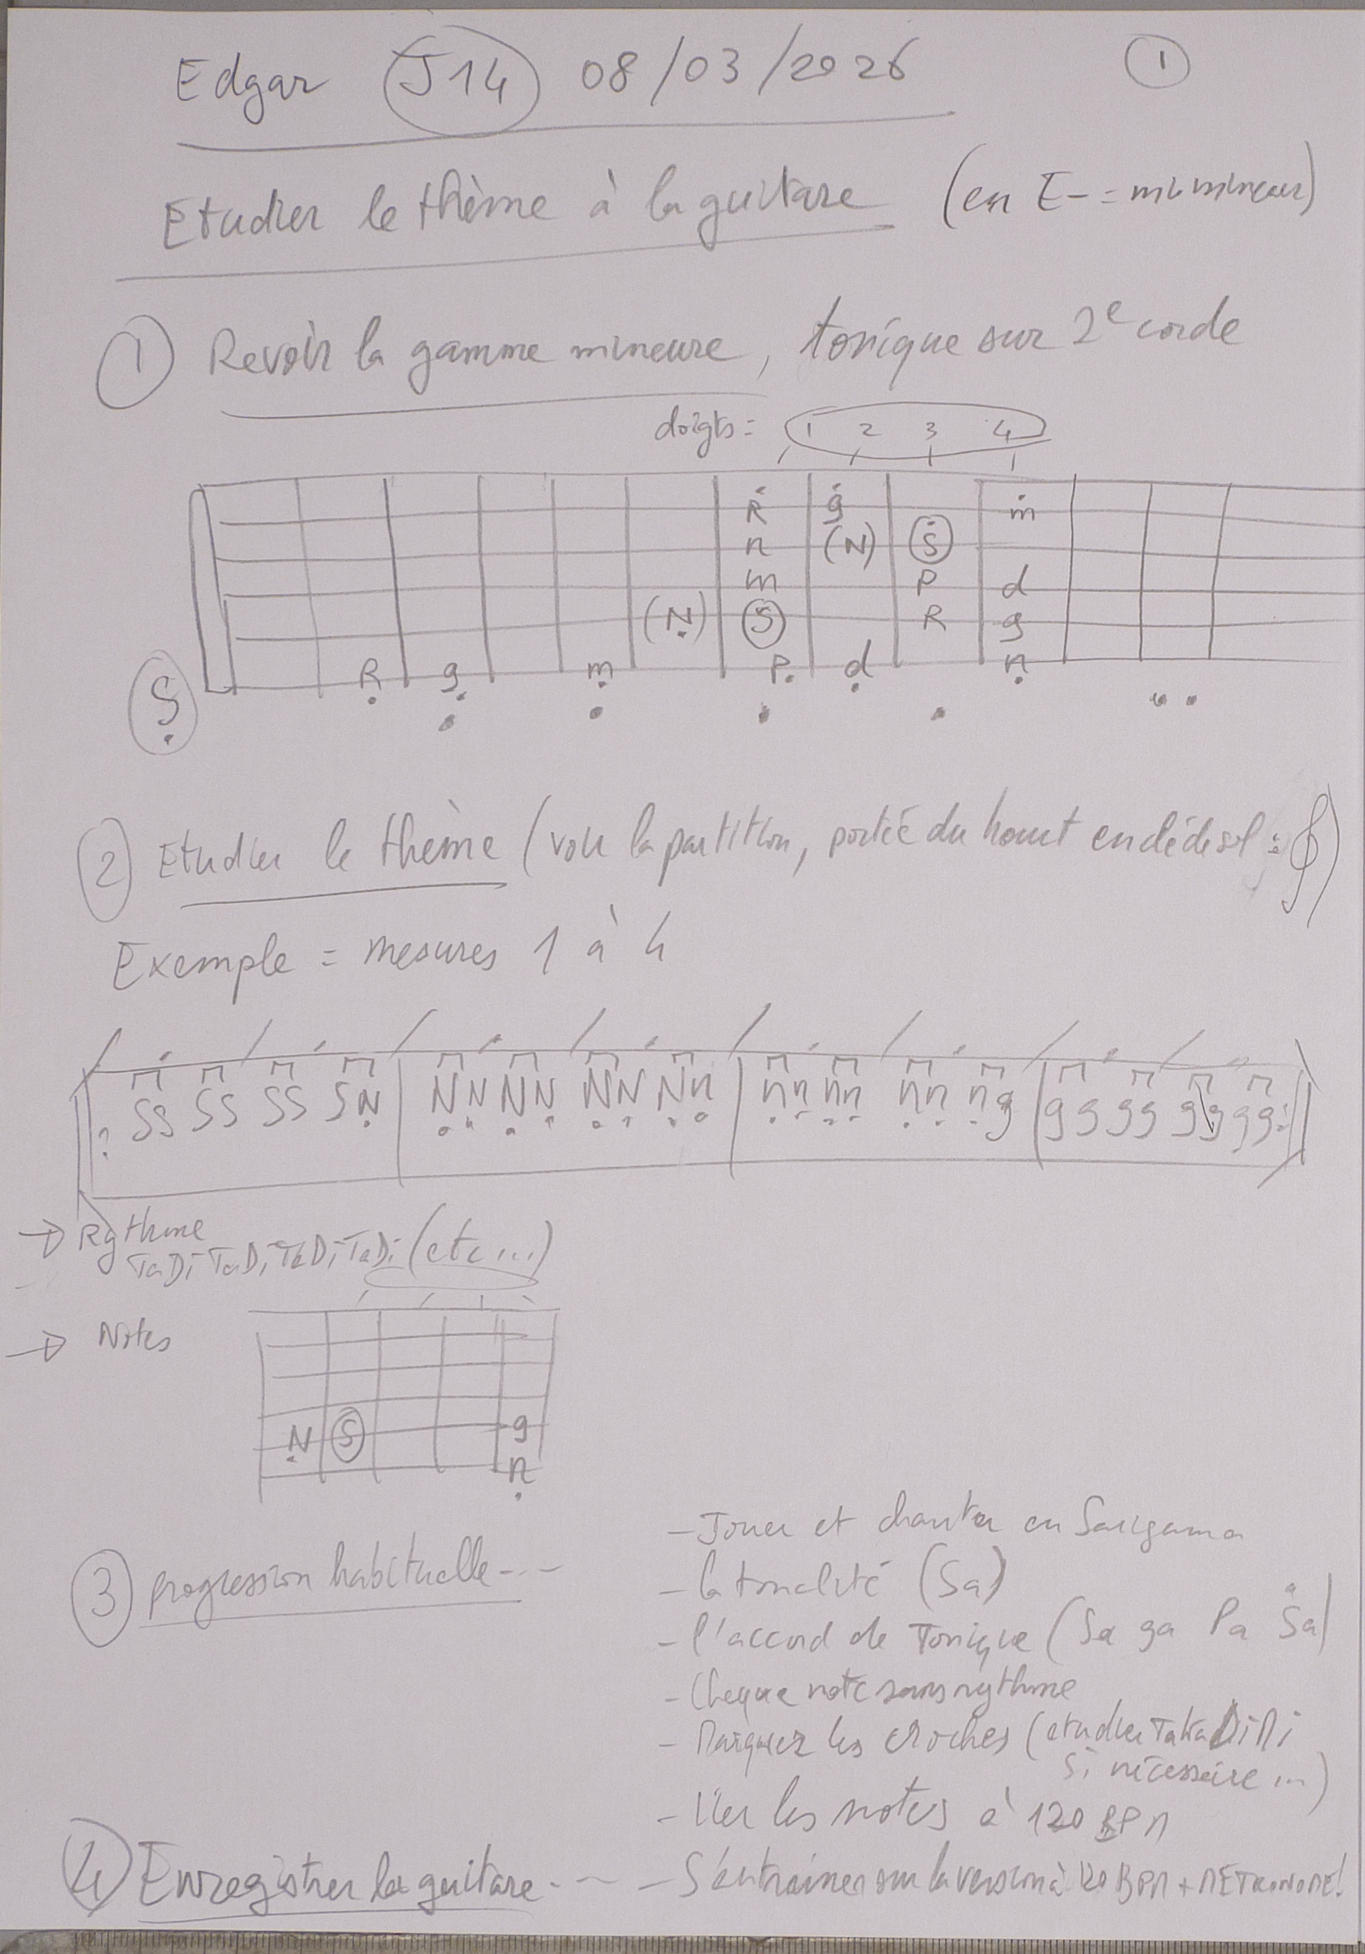 Edgar J14 08/03/2026 1
Etudier le thème à la guitare (en E- = mi mineur)
1 Revoir la gamme mineure, tonique sur 2e corde
doigts = 1 2 3 4
Ṙ ġ ṁ
n (N) Ṡ
m P d
(Ṇ) S R g
Ṣ Ṛ g̣ ṃ P̣ ḍ ṇ
2 Etudier le thème (voir la partition, portée du haut en clé de sol : 𝄞)
Exemple = mesures 1 à 4
SS SS SS SṆ | ṆṆ ṆṆ ṆṆ Ṇṇ | ṇṇ ṇṇ ṇṇ ṇg | gg gg gg gg :||
→ Rythme
TaDi TaDi TaDi TaDi (etc...)
→ Notes
Ṇ S g
ṇ
3 progression habituelle ---
- Jouer et chanter en Sarigama
- la tonalité (Sa)
- l'accord de Tonique (Sa ga Pa Ṡa)
- Chaque note sans rythme
- Marquer les croches (etudier TakaDiMi
si nécessaire ...)
- Lier les notes à 120 BPM
4 Enregistrer la guitare --- - S'entraîner sur la version à 120 BPM + METRONOME!